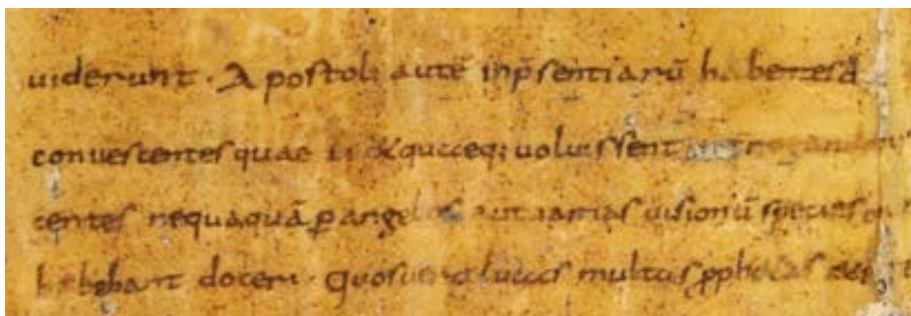 uiderunt · Apostoli autē inp̄sentiarū habentes
conuescentesquae ei & quęceq; uoluissent
centes nequaquā ꝑ angelos aut uarias uisionū species
habebant doceri · quosuero lucas multos ꝓphetas